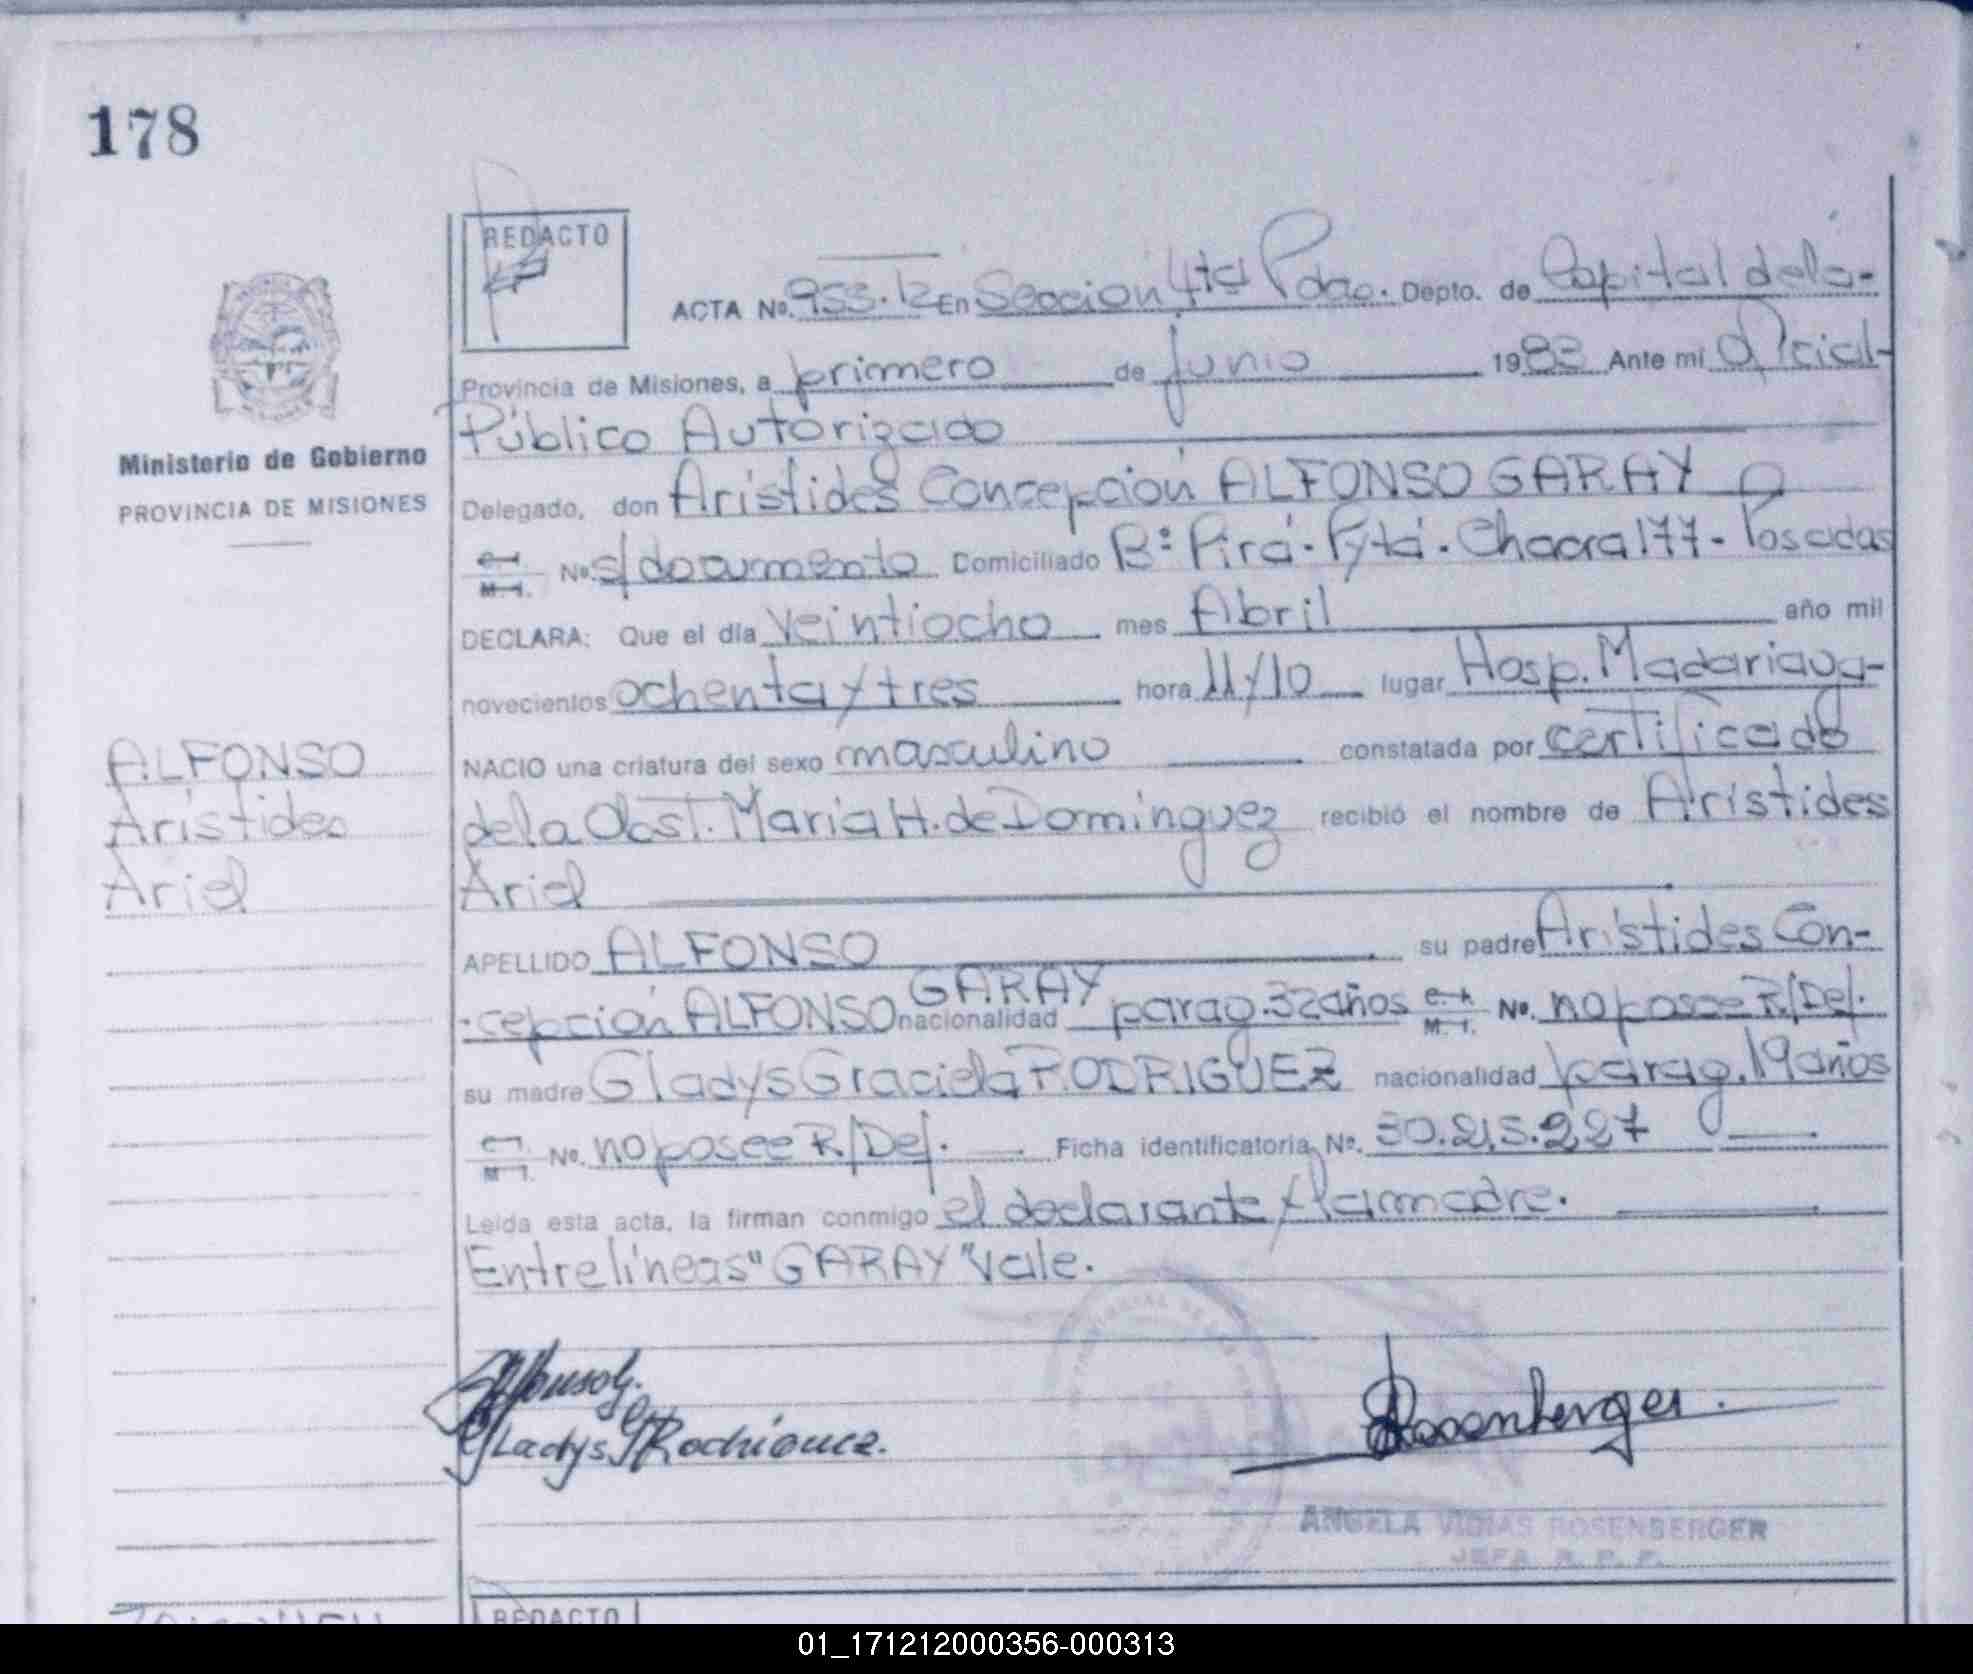 178
REDACTO
ACTA No. 953.12 En Seccion 4ta Pdas. Depto. de Capital dela-
Provincia de Misiones, a primero de junio 1983 Ante mí Oficial-
Público Autorizado
Ministerio de Gobierno
PROVINCIA DE MISIONES
Delegado, don Arístides Concepción ALFONSO GARAY
No. s/documento Domiciliado Bº Pirá-Pytá-Chacra 177-Posadas
M.I.
DECLARA: Que el día veintiocho mes Abril año mil
novecientos ochenta y tres hora 11y10 lugar Hosp. Madariaga-
NACIO una criatura del sexo masculino constatada por certificado
dela Obst. María H. de Domínguez recibió el nombre de Arístides
Ariel
ALFONSO
Arístides
Ariel
APELLIDO ALFONSO su padre Arístides Con-
-cepción ALFONSO GARAY nacionalidad parag. 32años No. no posee R/Def.
M.I.
su madre Gladys Graciela RODRIGUEZ nacionalidad parag. 19años
No. no posee R/Def. Ficha identificatoria No. 30.215.227
Leída esta acta, la firman conmigo el declarante y la madre.
Entrelíneas "GARAY" Vale.
Gladys G Rodríguez.
Rosenberger.
ANGELA VIDIAS ROSENBERGER
JEFA R. P. P.
REDACTO
01_171212000356-000313